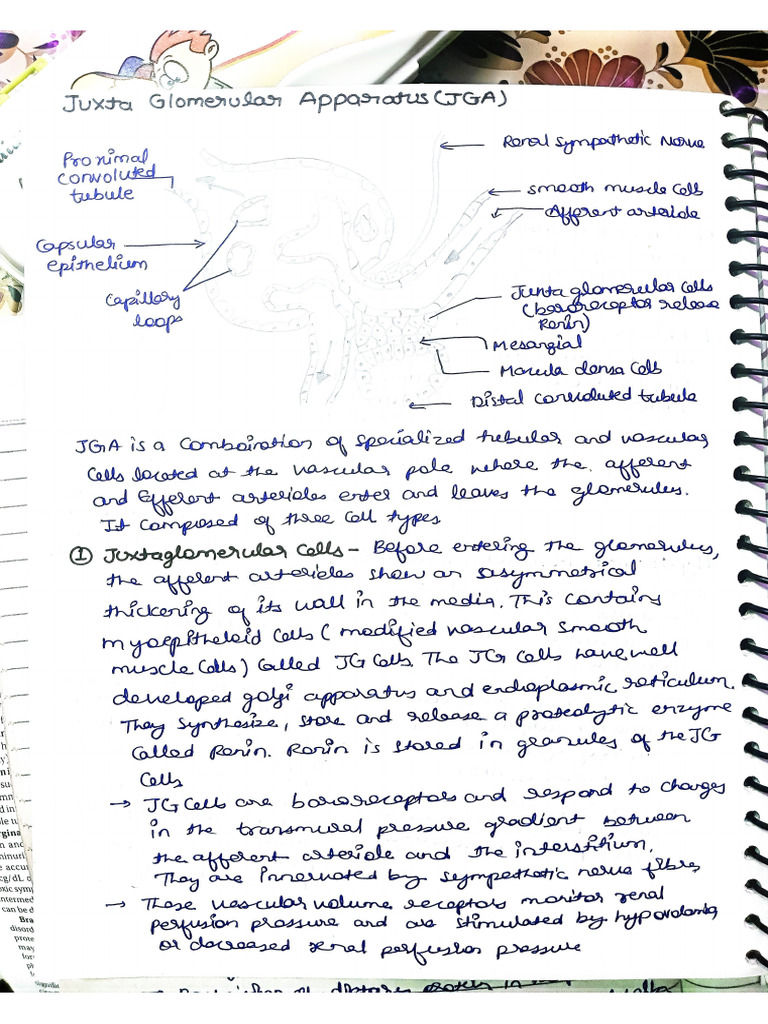 Juxta Glomerular Apparatus (JGA)
Proximal
convoluted
tubule
Capsular
epithelium
Capillary
loops
Renal sympathetic Nerve
smooth muscle cells
Afferent arteriole
Juxta glomerular cells
(baroreceptor release
Renin)
Mesangial
Macula densa cells
Distal convoluted tubule
JGA is a combination of specialized tubular and vascular
cells located at the vascular pole where the afferent
and Efferent arterioles enter and leaves the glomerulus.
It composed of three cell types
① Juxtaglomerular cells - Before entering the glomerulus,
the afferent arterioles show an asymmetrical
thickening of its wall in the media. This contains
myoepitheloid cells (modified vascular smooth
muscle cells) called JG cells. The JG cells have well
developed golgi apparatus and endoplasmic reticulum.
They synthesize, store and release a proteolytic enzyme
called Renin. Renin is stored in granules of the JG
cells
→ JG cells are baroreceptors and respond to changes
in the transmural pressure gradient between
the afferent arteriole and the interstitium.
They are innervated by sympathetic nerve fibres
→ These vascular volume receptors monitor renal
perfusion pressure and are stimulated by hypovolemia
or decreased renal perfusion pressure